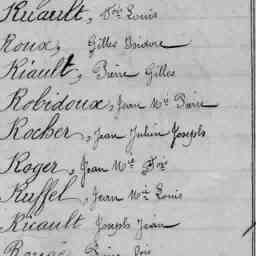 Ruault, Vor Louis
Roux, Gilles Isidore
Riault, Pierre Gilles
Robidoux, Jean Mie Pierre
Rocher, Jean Julien Joseph
Roger, Jean Mie
Ruffel, Jean Mie Louis
Ricault Joseph Jean
Pierre